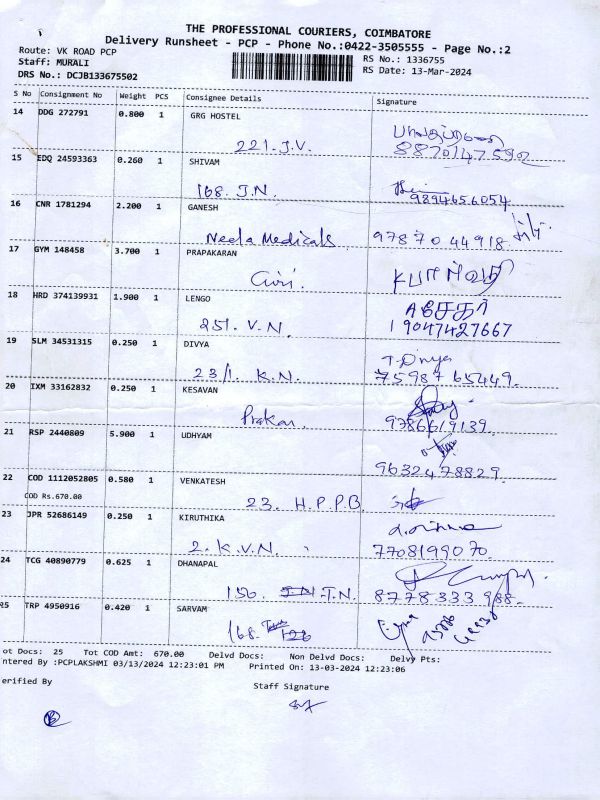 THE PROFESSIONAL COURIERS, COIMBATORE
Delivery Runsheet - PCP - Phone No.:0422-3505555 - Page No.:2
Route: VK ROAD PCP
RS No.: 1336755
Staff: MURALI
RS Date: 13-Mar-2024
DRS No.: DCJB133675502
S No Consignment No Weight PCS Consignee Details Signature
14 DDG 272791 0.800 1 GRG HOSTEL
221. J.V. 8870147590
15 EDQ 24593363 0.260 1 SHIVAM
168. J.N. 9894656054
16 CNR 1781294 2.200 1 GANESH
Neela Medicals 9787044918
17 GYM 148458 3.700 1 PRAPAKARAN
Giri.
18 HRD 374139931 1.900 1 LENGO
251. V.N. 19047427667
19 SLM 34531315 0.250 1 DIVYA
T. Divya
23/1. K.N. 7598765449.
20 IXM 33162832 0.250 1 KESAVAN
9786619139
21 RSP 2440809 5.900 1 UDHYAM
9632478829
22 COD 1112052805 0.580 1 VENKATESH
COD Rs.670.00 23. H.P.P.B.
23 JPR 52686149 0.250 1 KIRUTHIKA
2. K.V.N. 7708199070.
24 TCG 40890779 0.625 1 DHANAPAL
156. I.N. 8778333988
25 TRP 4950916 0.420 1 SARVAM
168.
ot Docs: 25 Tot COD Amt: 670.00 Delvd Docs: Non Delvd Docs: Delvy Pts:
ntered By :PCPLAKSHMI 03/13/2024 12:23:01 PM Printed On: 13-03-2024 12:23:06
erified By Staff Signature